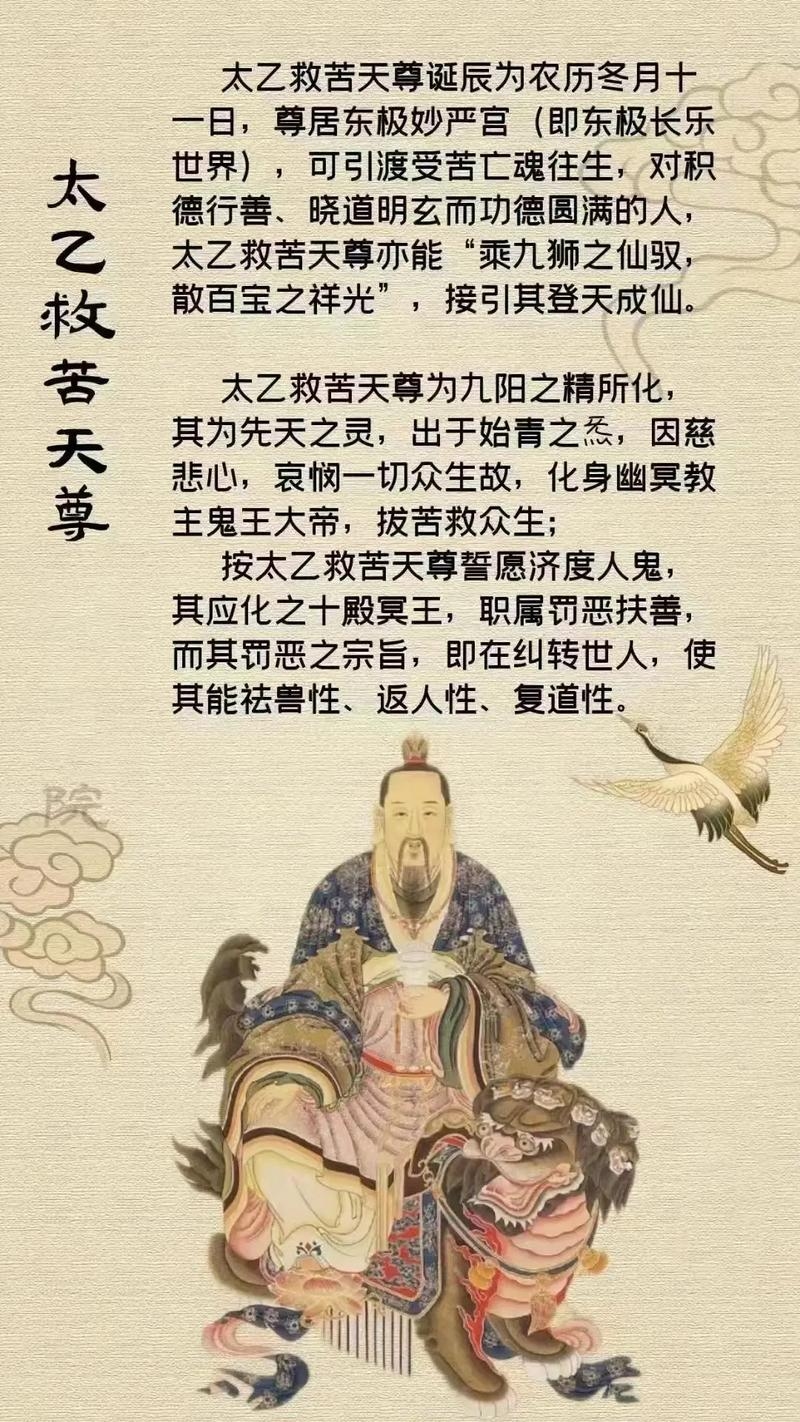 太乙救苦天尊
太乙救苦天尊诞辰为农历冬月十
一日，尊居东极妙严宫（即东极长乐
世界），可引渡受苦亡魂往生，对积
德行善、晓道明玄而功德圆满的人，
太乙救苦天尊亦能“乘九狮之仙驭，
散百宝之祥光”，接引其登天成仙。
太乙救苦天尊为九阳之精所化，
其为先天之灵，出于始青之炁，因慈
悲心，哀悯一切众生故，化身幽冥教
主鬼王大帝，拔苦救众生；
按太乙救苦天尊誓愿济度人鬼，
其应化之十殿冥王，职属罚恶扶善，
而其罚恶之宗旨，即在纠转世人，使
其能祛兽性、返人性、复道性。
院